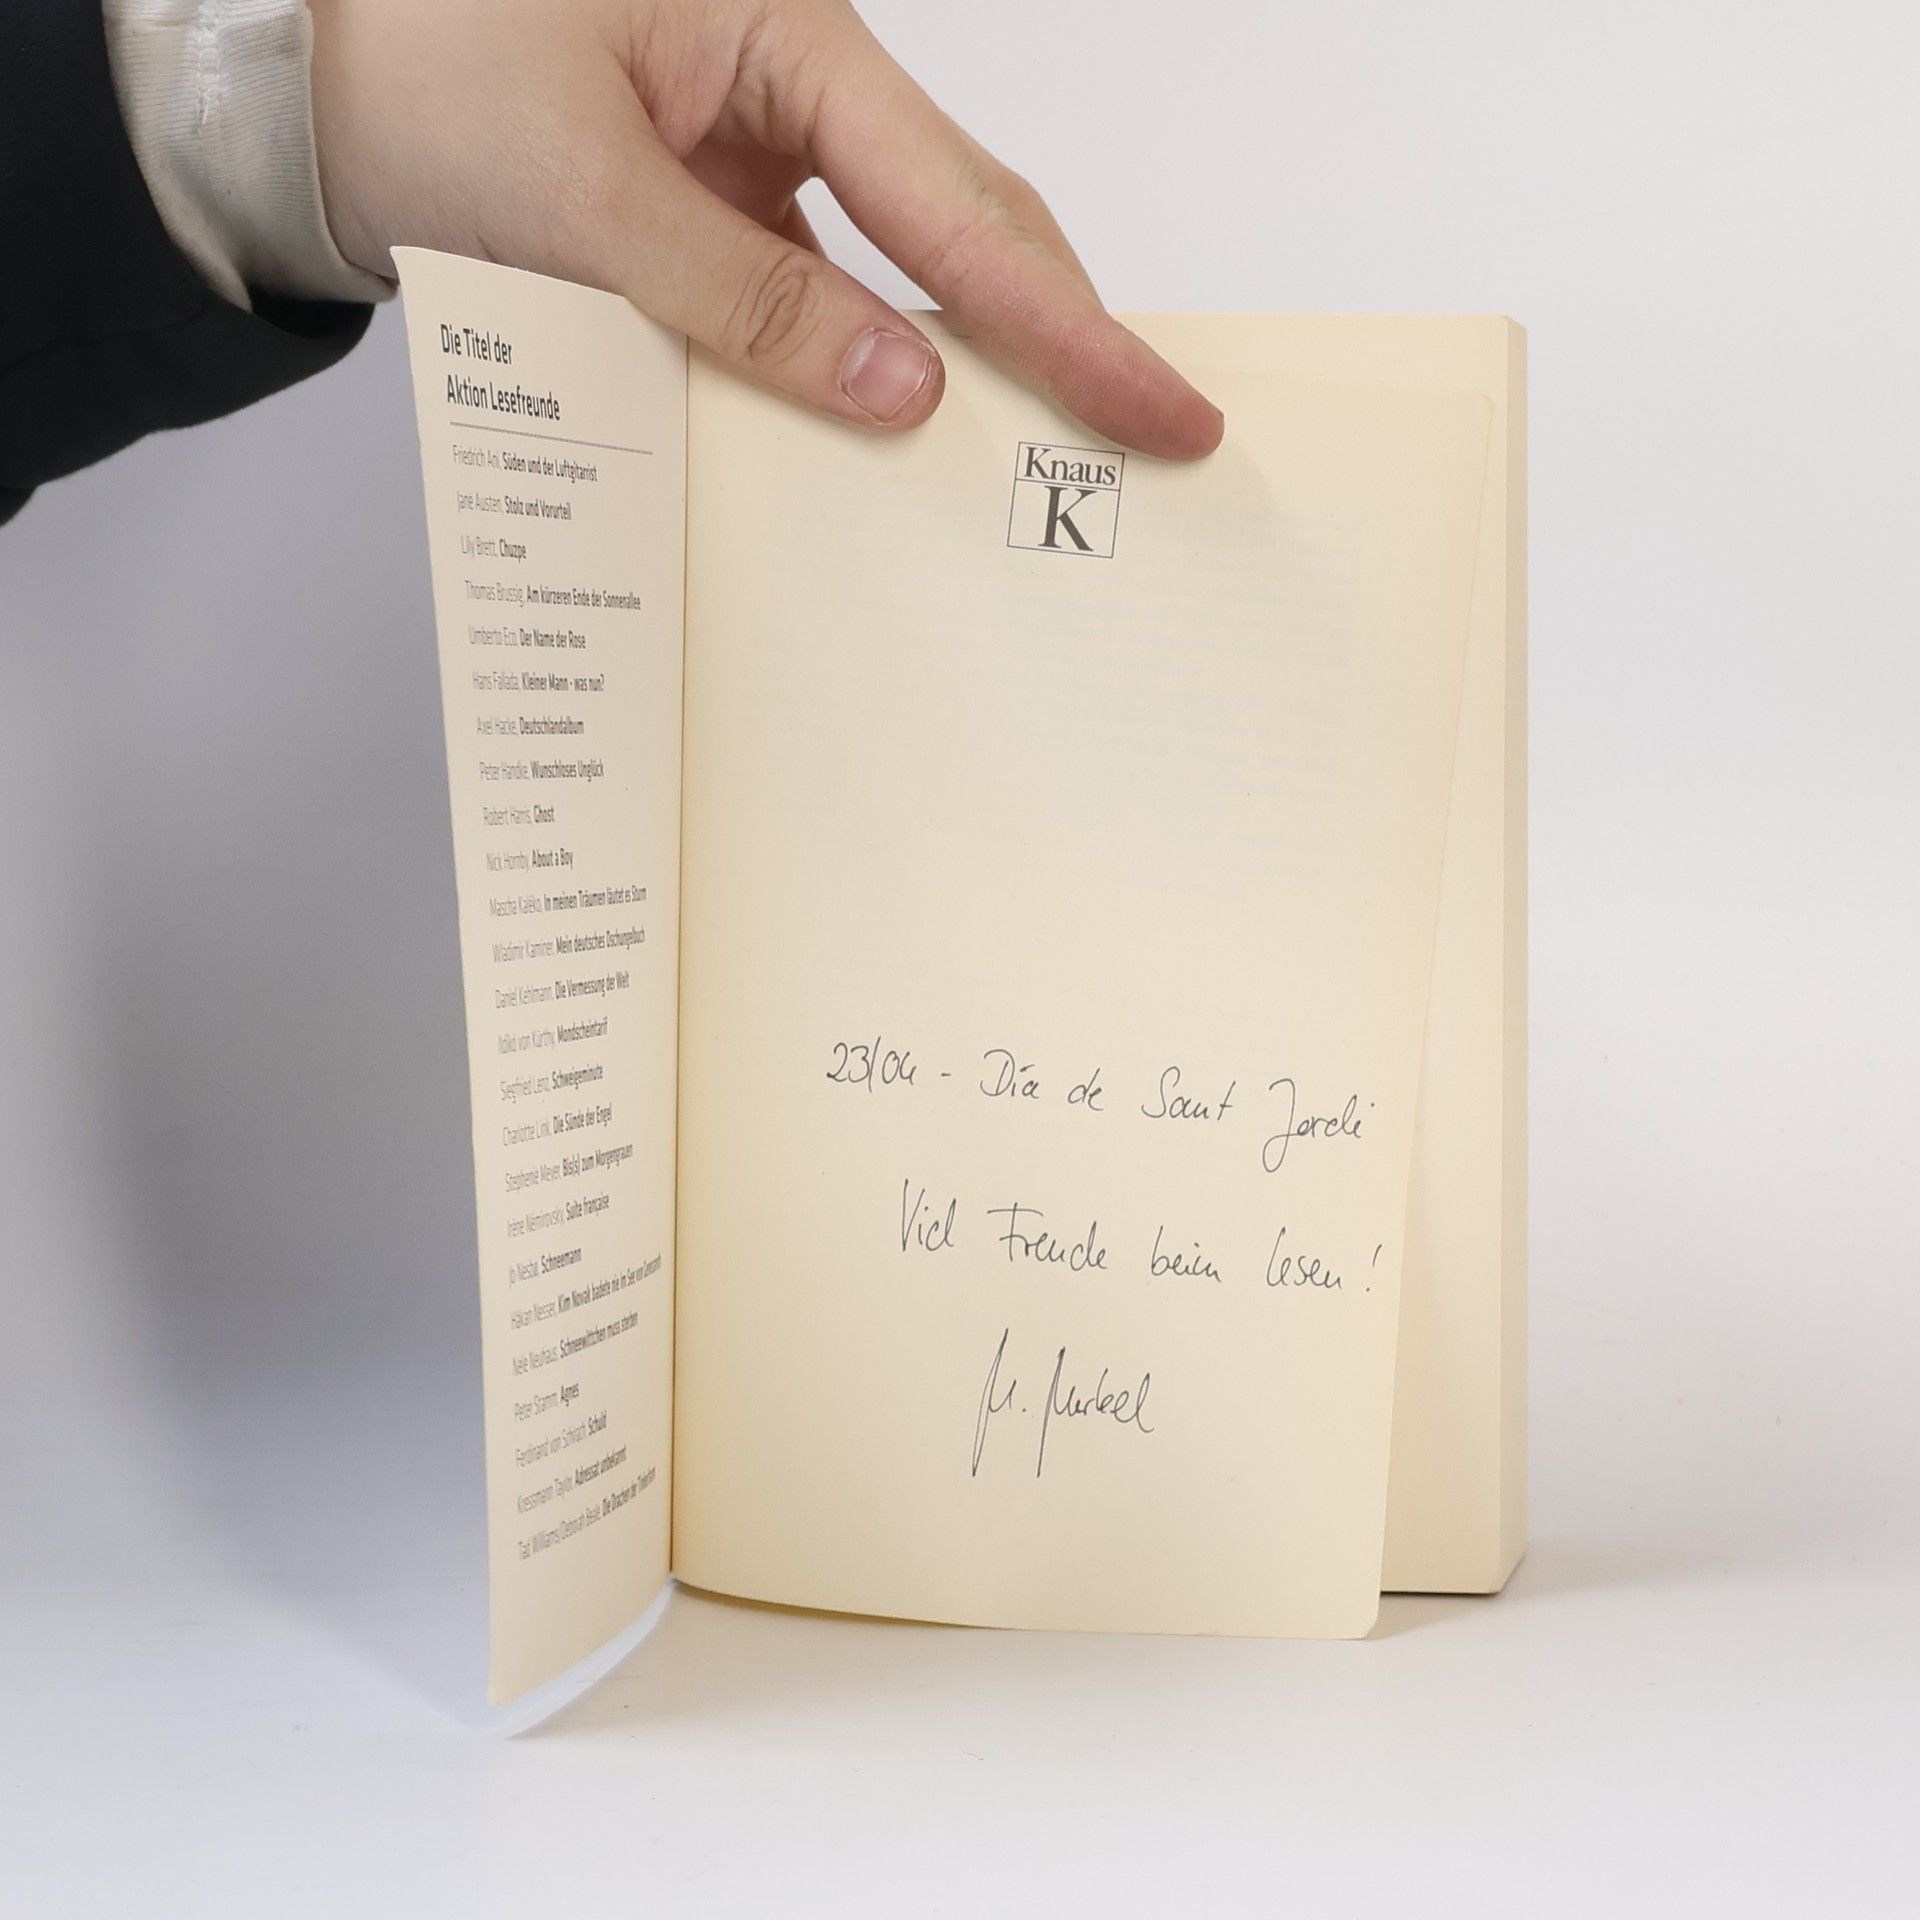 Die Titel der
Aktion Lesefreunde
Friedrich Ani, Süden und der Luftgitarrist
Jane Austen, Stolz und Vorurteil
Lily Brett, Chuzpe
Thomas Brussig, Am kürzeren Ende der Sonnenallee
Umberto Eco, Der Name der Rose
Hans Fallada, Kleiner Mann - was nun?
Axel Hacke, Deutschlandalbum
Peter Handke, Wunschloses Unglück
Robert Harris, Ghost
Nick Hornby, About a Boy
Mascha Kaléko, In meinen Träumen läutet es Sturm
Wladimir Kaminer, Mein deutsches Dschungelbuch
Daniel Kehlmann, Die Vermessung der Welt
Ildikó von Kürthy, Mondscheintarif
Siegfried Lenz, Schweigeminute
Charlotte Link, Die Sünde der Engel
Stephenie Meyer, Bis(s) zum Morgengrauen
Irène Némirovsky, Suite française
Jo Nesbø, Schneemann
Håkan Nesser, Kim Novak badete nie im See von Genezareth
Nele Neuhaus, Schneewittchen muss sterben
Peter Stamm, Agnes
Ferdinand von Schirach, Schuld
Kressmann Taylor, Adressat unbekannt
Tad Williams/Deborah Beale, Die Drachen der Tinkerfarm
Knaus
K
23/04 - Día de Sant Jordi
Viel Freude beim Lesen!
M. Merkel